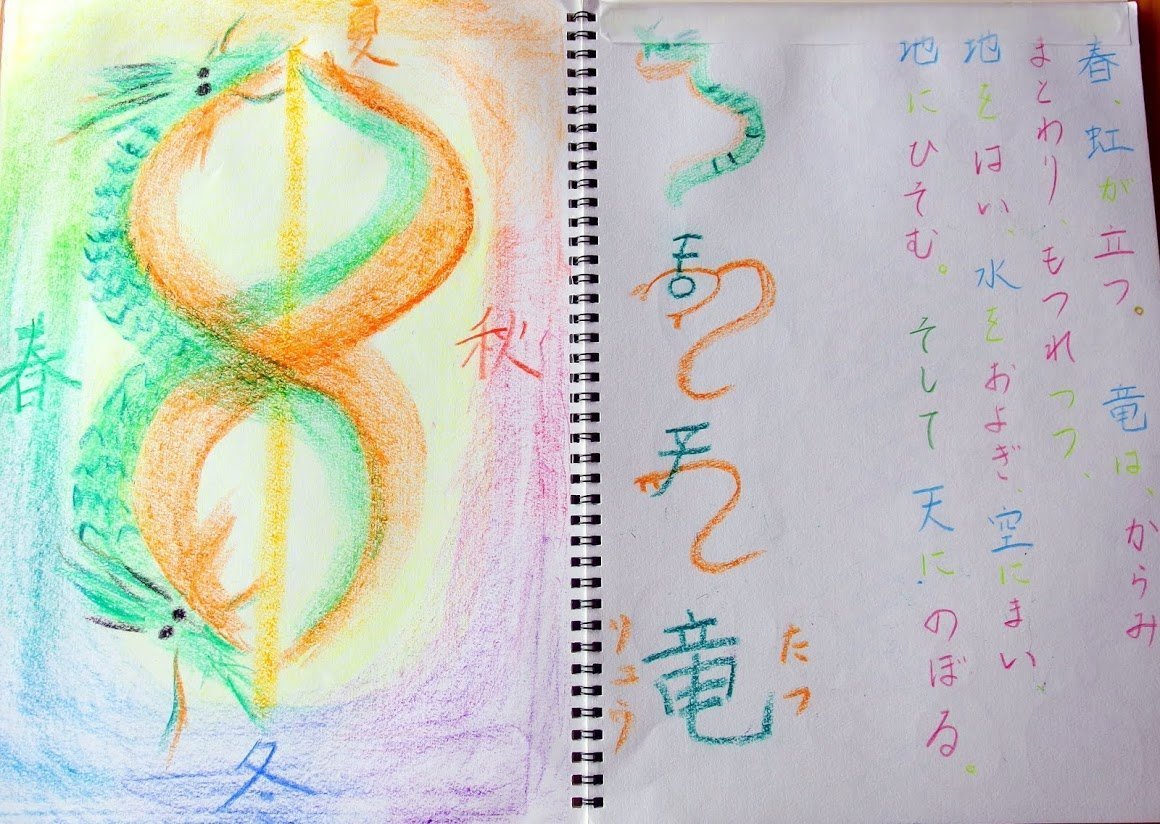 春、虹が立つ。 竜は、からみ
まとわり、もつれつつ、
地をはい、水をおよぎ、空にまい、
地にひそむ。そして天にのぼる。
たつ
竜
りゅう
夏
秋
春
冬